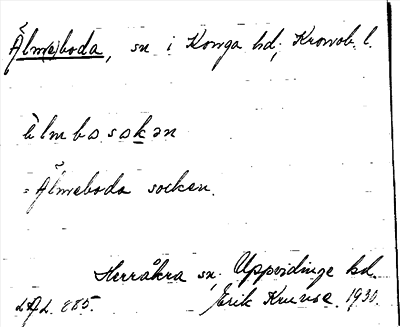 Älm(e)boda, sn i Konga hd, Kronob. l.
èlmbosokən
= Älmeboda socken.
Herråkra sn, Uppvidinge hd.
Erik Kruuse. 1930.